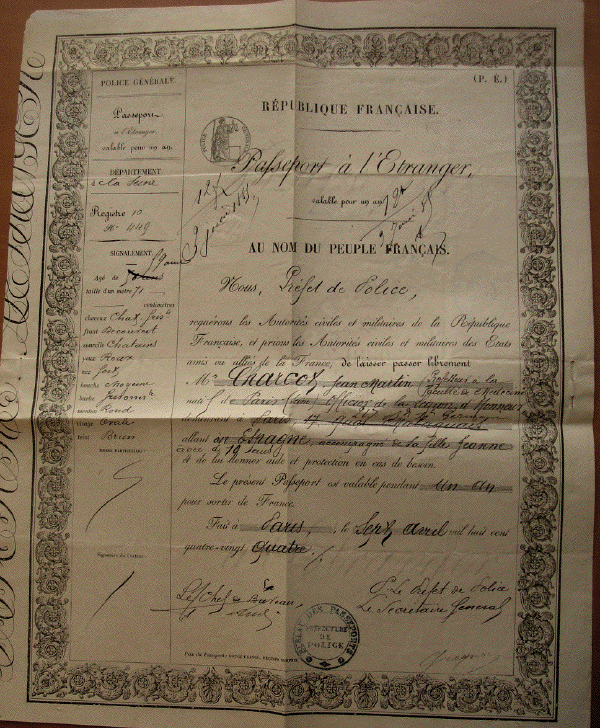 POLICE GÉNÉRALE
Passeport
à l'Etranger
valable pour un an.
DÉPARTEMENT
de la Seine
Registre 10
N° 449
SIGNALEMENT.
59 ans
Agé de
taille d'un mètre 71
centimètres
cheveux Chat. gris
front Découvert
sourcils Chatains
yeux Roux
nez fort
bouche moyenne
barbe
menton Rond
visage Ovale
teint Brun
SIGNES PARTICULIERS
Signature du Porteur
(P. E.)
RÉPUBLIQUE FRANÇAISE.
Passeport à l'Etranger,
valable pour un an
AU NOM DU PEUPLE FRANÇAIS.
Nous, Préfet de Police,
requérons les Autorités civiles et militaires de la République
Française, et prions les Autorités civiles et militaires des Etats
amis ou alliés de la France, de laisser passer librement
M Charcot, Jean Martin, Professeur à la
Faculté de Médecine
natif de Paris Officier de la Légion d'Honneur
demeurant à Paris 17 Quai Malaquais
allant en Espagne, accompagné de sa fille Jeanne
et de lui donner aide et protection en cas de besoin.
Le présent Passeport est valable pendant un an
pour sortir de France.
Fait à Paris, le Sept Avril mil huit cent
quatre-vingt quatre
Le Chef de Bureau,
P. Le Préfet de Police
Le Secrétaire Général
BUREAU DES PASSEPORTS
PRÉFECTURE
DE
POLICE